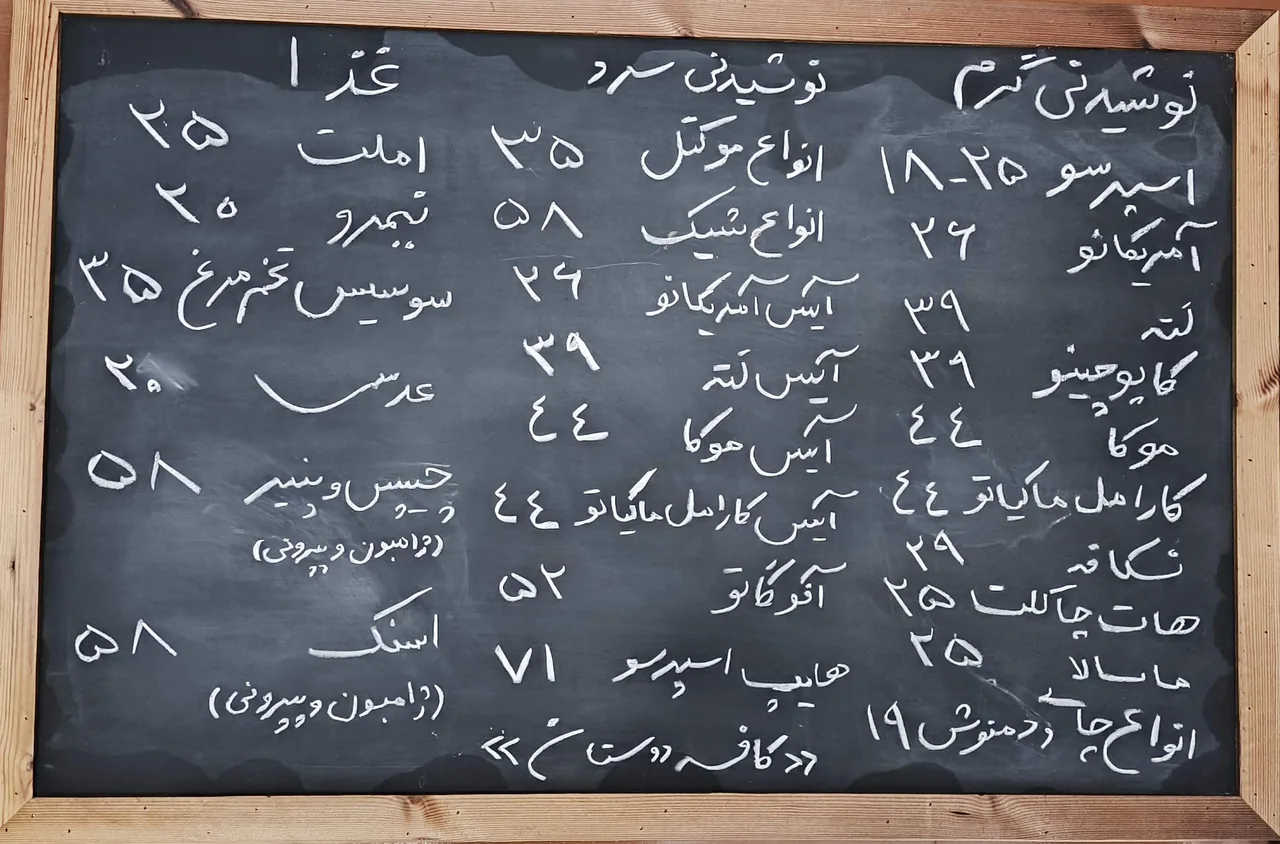 نوشیدنی گرم
اسپرسو ۲۵-۱۸
آمریکانو ۲۶
لته ۳۹
کاپوچینو ۳۹
موکا ٤٤
کارامل ماکیاتو ٤٤
نسکافه ۲۹
هات چاکلت ۲۵
ماسالا ۲۵
انواع چای و دمنوش ۱۹
نوشیدنی سرد
انواع موکتل ۳۵
انواع شیک ۵۸
آیس آمریکانو ۲۶
آیس لته ۳۹
آیس موکا ٤٤
آیس کارامل ماکیاتو ٤٤
آفوگاتو ۵۲
هایپ اسپرسو ۷۱
«کافه دوستان»
غذا
املت ۲۵
نیمرو ۲۰
سوسیس تخم مرغ ۳۵
عدسی ۲۰
چیپس و پنیر ۵۸
(ژامبون و پپرونی)
اسنک ۵۸
(ژامبون و پپرونی)